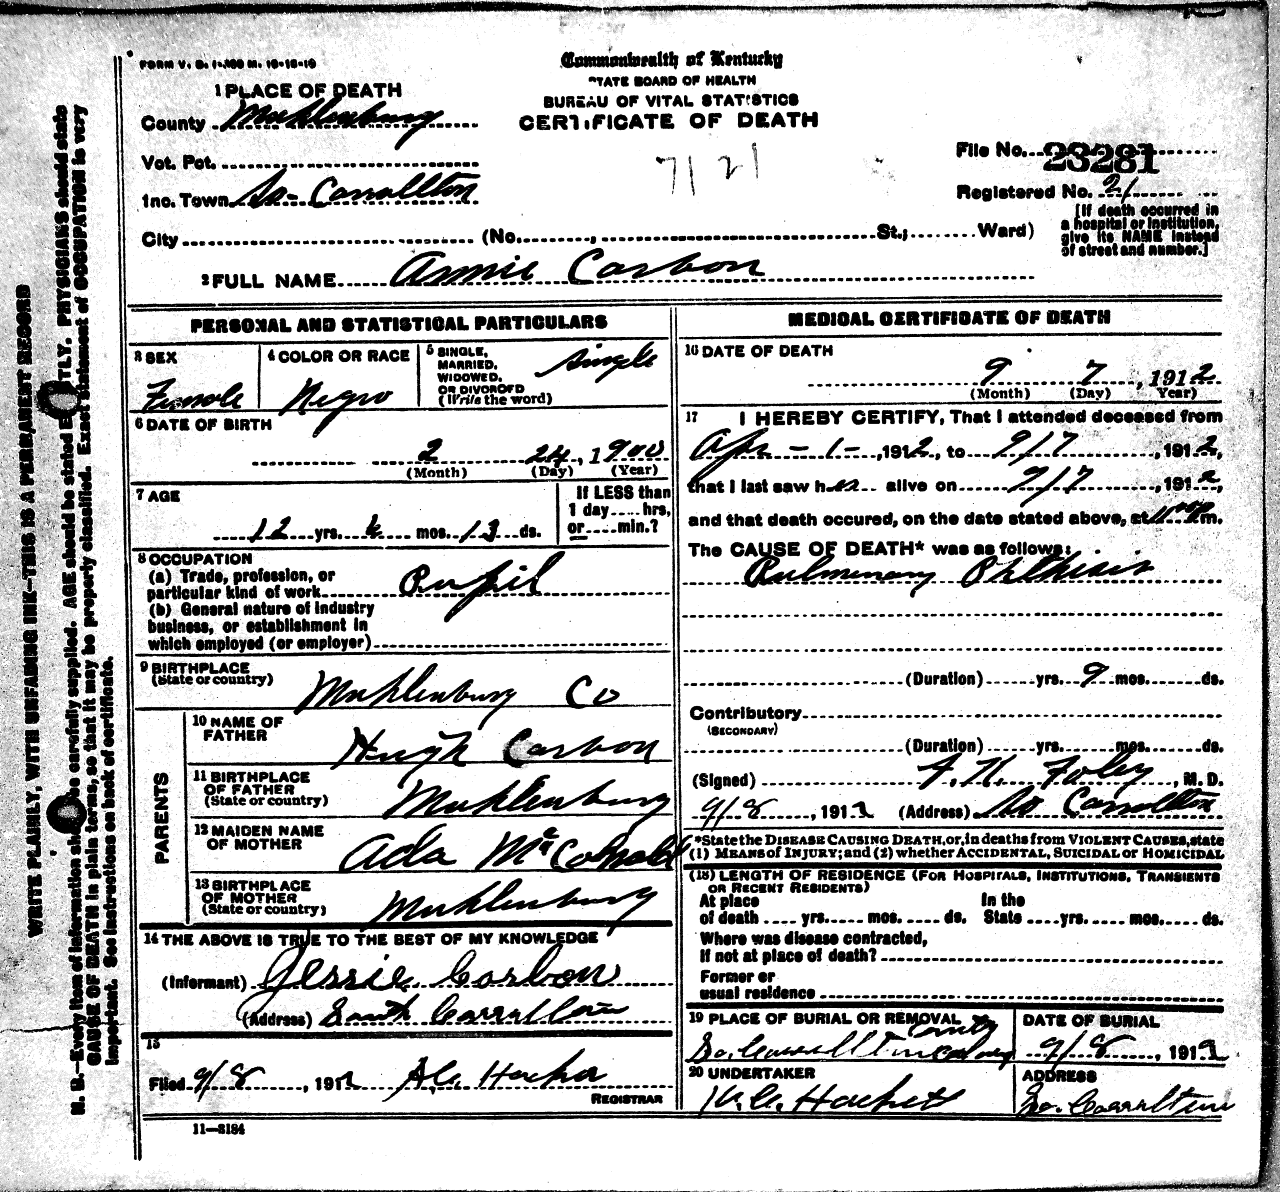 FORM V. S. 1-100 M. 10-18-10
Commonwealth of Kentucky
STATE BOARD OF HEALTH
BUREAU OF VITAL STATISTICS
CERTIFICATE OF DEATH
1 PLACE OF DEATH
County Muhlenburg
Vot. Pct.
Inc. Town So- Carrollton
7121
File No. 23281
Registered No. 21
[If death occurred in a hospital or institution, give its NAME instead of street and number.]
City (No. , St.; Ward)
2 FULL NAME Annie Carbon
PERSONAL AND STATISTICAL PARTICULARS
3 SEX
Female
4 COLOR OR RACE
Negro
5 SINGLE, MARRIED, WIDOWED, OR DIVORCED (Write the word)
Single
6 DATE OF BIRTH
2 24, 1900
(Month) (Day) (Year)
7 AGE
12 yrs. 6 mos. 13 ds.
If LESS than 1 day hrs, or min.?
8 OCCUPATION
(a) Trade, profession, or particular kind of work Pupil
(b) General nature of industry business, or establishment in which employed (or employer)
9 BIRTHPLACE
(State or country)
Muhlenburg Co
PARENTS
10 NAME OF FATHER
Hugh Carbon
11 BIRTHPLACE OF FATHER
(State or country)
Muhlenburg
12 MAIDEN NAME OF MOTHER
Ada
13 BIRTHPLACE OF MOTHER
(State or country)
Muhlenburg
14 THE ABOVE IS TRUE TO THE BEST OF MY KNOWLEDGE
(Informant) Jessie Carbon
(Address) South Carrollton
15
Filed 9/8, 1912
REGISTRAR
11-3184
MEDICAL CERTIFICATE OF DEATH
16 DATE OF DEATH
9 7, 1912
(Month) (Day) Year)
17 I HEREBY CERTIFY, That I attended deceased from
Apr - 1 -, 1912, to 9/7, 1912,
that I last saw her alive on 9/7, 1912,
and that death occured, on the date stated above, at m.
The CAUSE OF DEATH* was as follows:
Pulmonary Phthisis
(Duration) yrs. 9 mos. ds.
Contributory
(SECONDARY)
(Duration) yrs. mos. ds.
(Signed) Foley, M. D.
9/8, 1912 (Address) So Carrollton
*State the DISEASE CAUSING DEATH, or, in deaths from VIOLENT CAUSES, state
(1) MEANS of INJURY; and (2) whether ACCIDENTAL, SUICIDAL or HOMICIDAL
(18) LENGTH OF RESIDENCE (FOR HOSPITALS, INSTITUTIONS, TRANSIENTS OR RECENT RESIDENTS)
At place of death yrs. mos. ds. In the State yrs. mos. ds.
Where was disease contracted,
If not at place of death?
Former or
usual residence
19 PLACE OF BURIAL OR REMOVAL
So. Carrollton
DATE OF BURIAL
9/8, 1912
20 UNDERTAKER
Hackett
ADDRESS
So. Carrollton
WRITE PLAINLY, WITH UNFADING INK—THIS IS A PERMANENT RECORD
N. B.—Every item of information should be carefully supplied. AGE should be stated EXACTLY. PHYSICIANS should state
CAUSE OF DEATH in plain terms, so that it may be properly classified. Exact statement of OCCUPATION is very
important. See instructions on back of certificate.